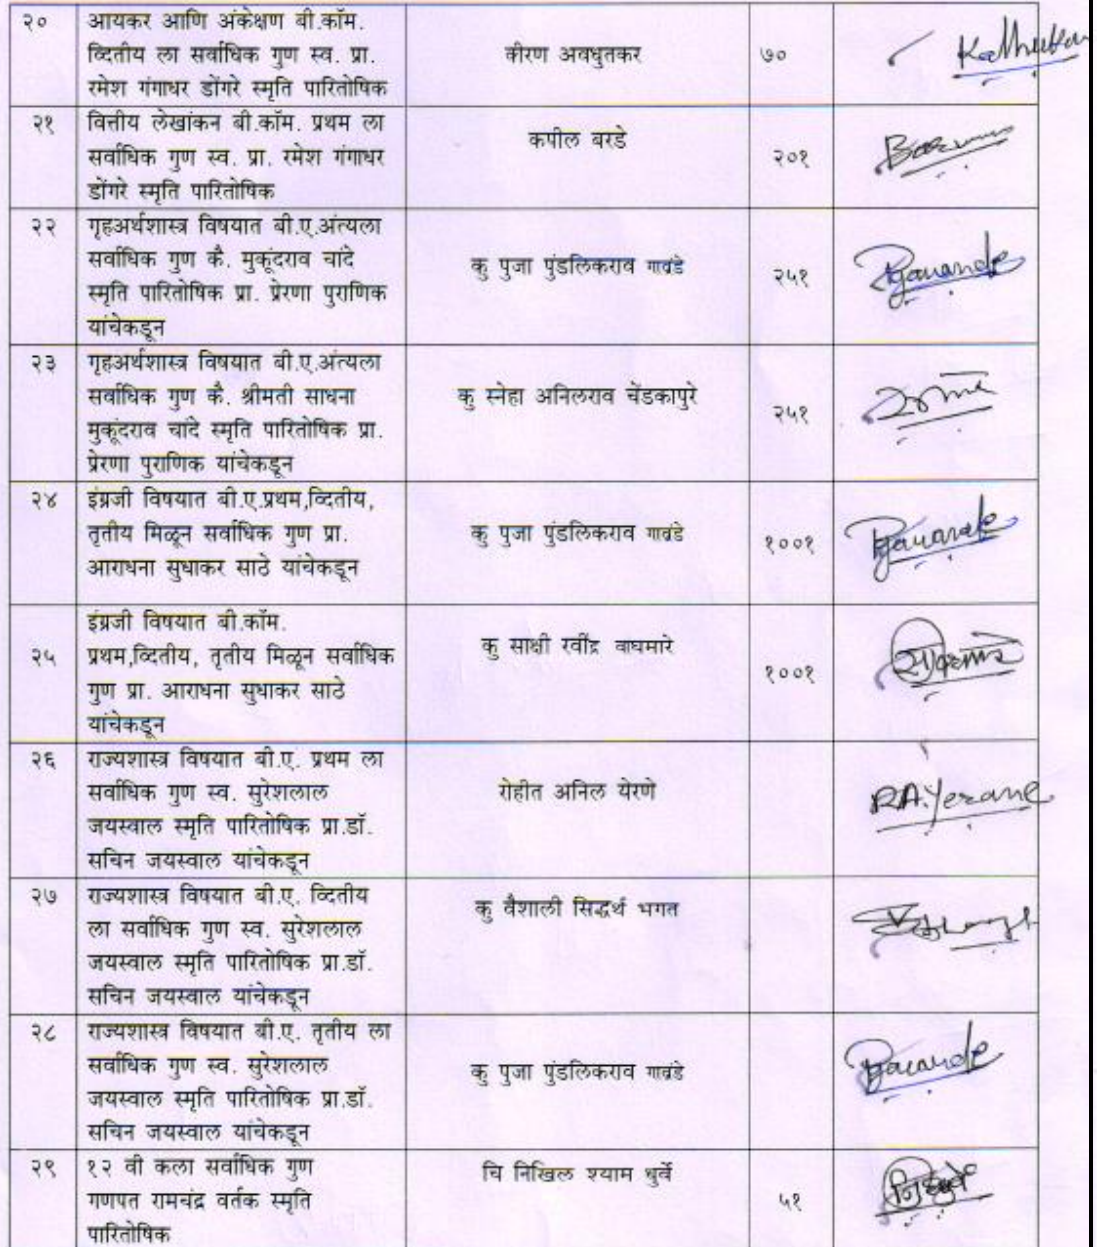 २० आयकर आणि अंकेक्षण बी.कॉम.
व्दितीय ला सर्वाधिक गुण स्व. प्रा.
रमेश गंगाधर डोंगरे स्मृति पारितोषिक
कीरण अवधुतकर
७०
२१ वित्तीय लेखांकन बी.कॉम. प्रथम ला
सर्वाधिक गुण स्व. प्रा. रमेश गंगाधर
डोंगरे स्मृति पारितोषिक
कपील बरडे
२०१
२२ गृहअर्थशास्त्र विषयात बी.ए.अंत्यला
सर्वाधिक गुण कै. मुकूंदराव चांदे
स्मृति पारितोषिक प्रा. प्रेरणा पुराणिक
यांचेकडून
कु पुजा पुंडलिकराव गावंडे
२५१
२३ गृहअर्थशास्त्र विषयात बी.ए.अंत्यला
सर्वाधिक गुण कै. श्रीमती साधना
मुकूंदराव चांदे स्मृति पारितोषिक प्रा.
प्रेरणा पुराणिक यांचेकडून
कु स्नेहा अनिलराव चेंडकापुरे
२५१
२४ इंग्रजी विषयात बी.ए.प्रथम,व्दितीय,
तृतीय मिळून सर्वाधिक गुण प्रा.
आराधना सुधाकर साठे यांचेकडून
कु पुजा पुंडलिकराव गावंडे
१००१
२५ इंग्रजी विषयात बी.कॉम.
प्रथम,व्दितीय, तृतीय मिळून सर्वाधिक
गुण प्रा. आराधना सुधाकर साठे
यांचेकडून
कु साक्षी रवींद्र वाघमारे
१००१
२६ राज्यशास्त्र विषयात बी.ए. प्रथम ला
सर्वाधिक गुण स्व. सुरेशलाल
जयस्वाल स्मृति पारितोषिक प्रा.डॉ.
सचिन जयस्वाल यांचेकडून
रोहीत अनिल येरणे
R.A.Yerane
२७ राज्यशास्त्र विषयात बी.ए. व्दितीय
ला सर्वाधिक गुण स्व. सुरेशलाल
जयस्वाल स्मृति पारितोषिक प्रा.डॉ.
सचिन जयस्वाल यांचेकडून
कु वैशाली सिद्धर्थ भगत
२८ राज्यशास्त्र विषयात बी.ए. तृतीय ला
सर्वाधिक गुण स्व. सुरेशलाल
जयस्वाल स्मृति पारितोषिक प्रा.डॉ.
सचिन जयस्वाल यांचेकडून
कु पुजा पुंडलिकराव गावंडे
२९ १२ वी कला सर्वाधिक गुण
गणपत रामचंद्र वर्तक स्मृति
पारितोषिक
चि निखिल श्याम धुर्वे
५१